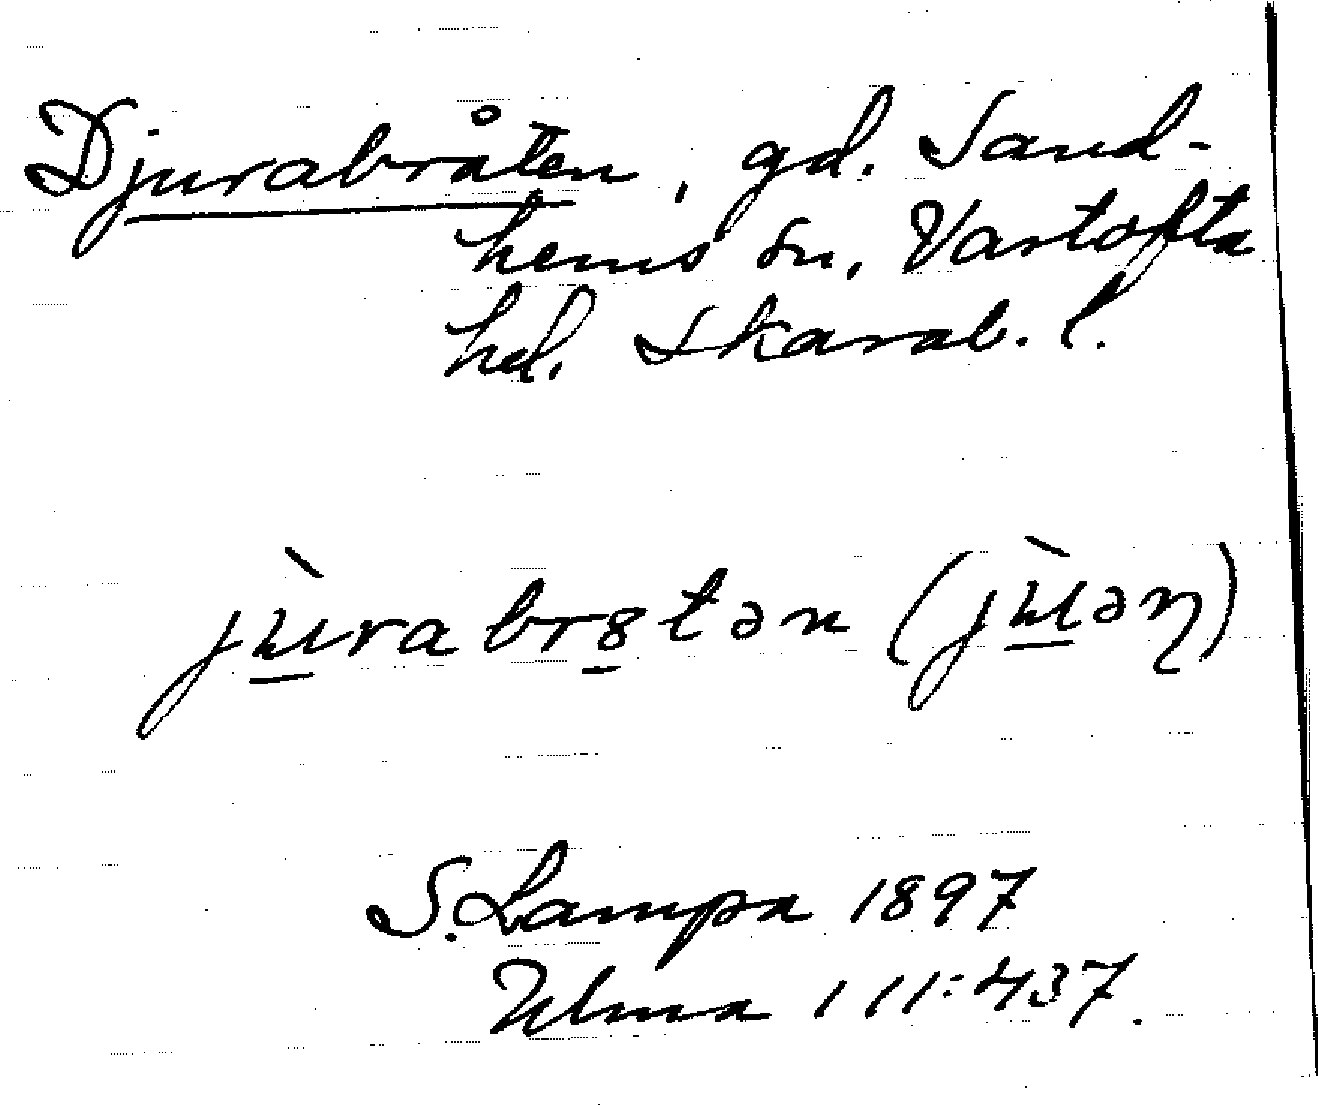 Djurabråten, gd. Sand-
hems sn, Vartofta
hd. Skarab. l.
jùrabr8tən (jùəŋ)
S. Lampa 1897
Ulma 111:437.